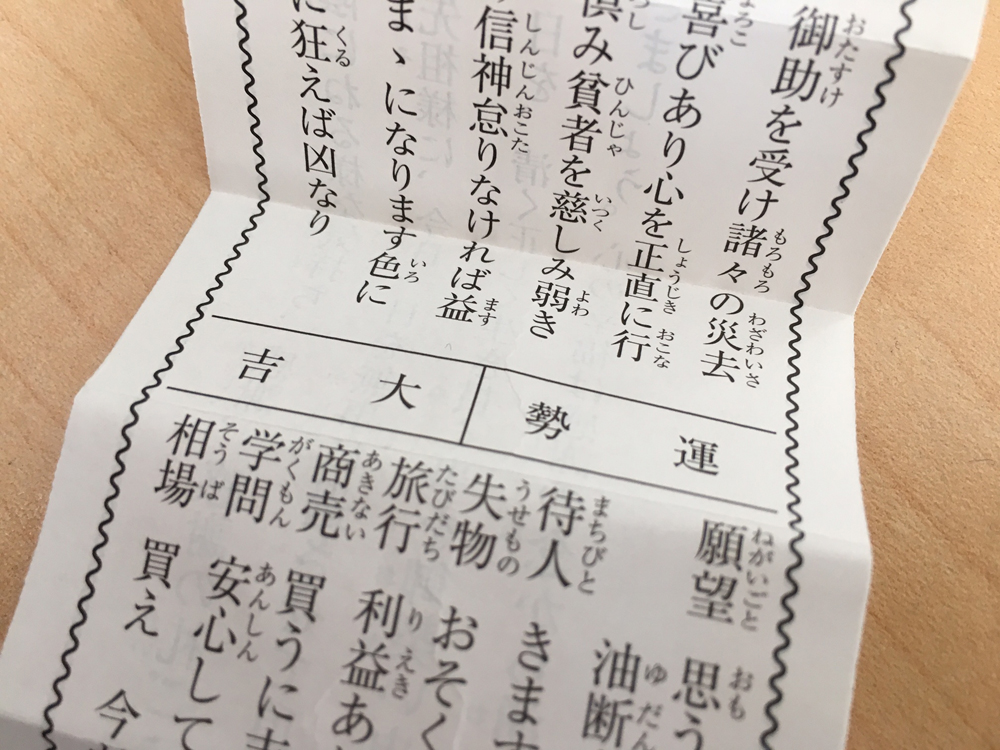 御助を受け諸々の災去
喜びあり心を正直に行
慎み貧者を慈しみ弱き
信神怠りなければ益
まゝになります色に
に狂えば凶なり
運勢
大吉
願望 思う
油断
待人 きます
失物 おそく
旅行 利益あ
商売 買うに
学問 安心して
相場 買え 今